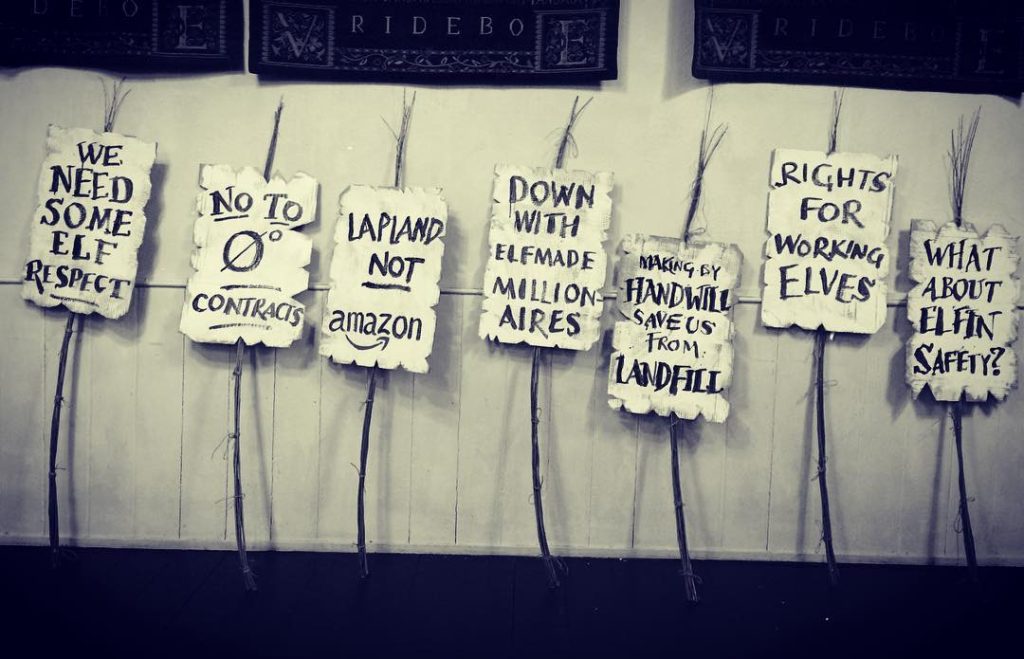 V RIDEBO E
RIDEBO
WE
NEED
SOME
ELF
RESPECT
NO TO
0°
CONTRACTS
LAPLAND
NOT
amazon
DOWN
WITH
ELFMADE
MILLION-
AIRES
MAKING BY
HAND WILL
SAVE US
FROM
LANDFILL
RIGHTS
FOR
WORKING
ELVES
WHAT
ABOUT
ELFIN
SAFETY?